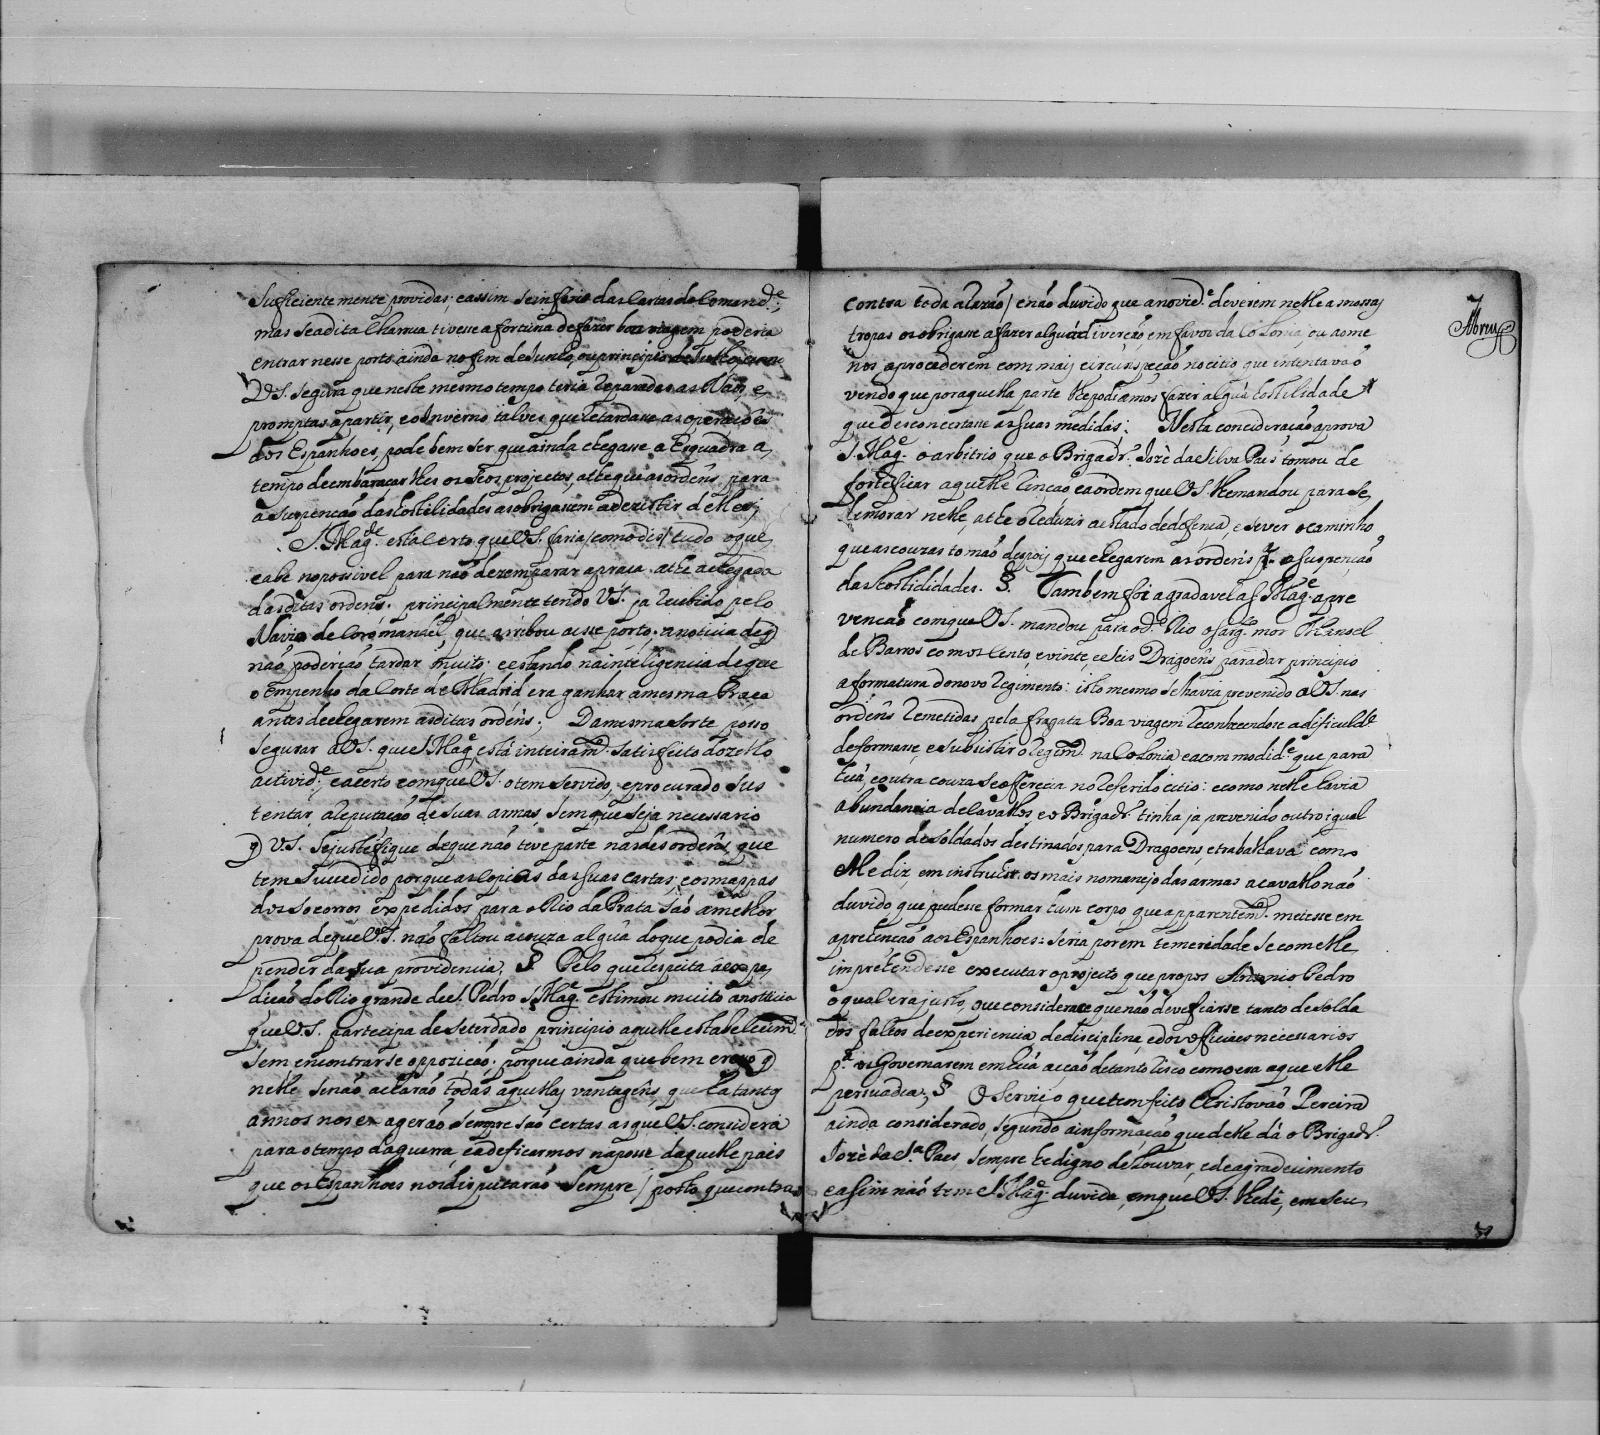 Suficientemente providas; e assim se infirio das Cartas do Comand.e;
mas se a dita Charrua tivesse a fortuna de fazer boa viagem poderia
entrar nesse porto ainda no fim de Junho, ou principio de Julho,
V.S. segura que nelle mesmo tempo teria reparadas as Naos, e
promptas a partir, e o Inverno talvez que retardasse as operaçoẽs
dos Espanhoes, pode bem ser que ainda chegasse a Esquadra a
tempo de embaraçar lhes os seos projectos, athe que as ordẽns para
a suspenção das hostilidades as obrigassem a dezistir delles;
S. Mag.de está certo que V.S. faria /como diz/ tudo o que
cabe no possivel para não dezemparar a praça athé a chegada
das ditas ordens. principalmente tendo V.S. já recebido pelo
Navio de Coromandel, que arribou a esse porto. a noticia de q
não poderião tardar muito. e estando na inteligencia de que
o empenho da Corte de Madrid era ganhar a mesma Praça
antes de chegarem as ditas ordẽns; Da mesma sorte posso
segurar a V.S. que S Mag.e está inteiram.te satisfeito do zello
activid.e, e acerto com que V.S. o tem servido, e procurado sus
tentar a reputação de suas armas, sem que seja necessario
q V.S. se justefique de que não teve parte nas desordẽns que
tem sucedido porque as copias das suas cartas, e os mappas
dos socorros expedidos para o Rio da Prata saõ a melhor
prova de que V.S. não faltou a couza algũa do que podia de
pender da sua providencia. § Pelo que respeita á expe
dição do Rio grande de S. Pedro S Mag.e estimou muito a noticia
que V.S. partecipa de se ter dado principio aquelle estabelecim.to
sem encontrarse oppozição; porque ainda que bem creyo q
nelle senão acharão todas aquellas vantagẽns, que ha tantos
annos nos exagerão sempre são certas as que V.S. considera
para o tempo da guerra, e a de ficarmos na posse daquelle pais
que os Espanhoes nos disputarão sempre / posto que contra
Contra toda a razão / e não duvido que a novid.e de verem nelle as nossas
tropas os obrigasse a fazer algũa diverção em favor da Colonia, ou ao me
nos a procederem com mais circunspecção no citio que intentavão
vendo que por aquella parte lhe podiamos fazer algũa hostilidade
que desconcertasse as suas medidas; Nesta concideração aprova
S. Mag.e o arbitrio que o Brigadr.o Jozè da Silva Paes tomou de
fortificar aquelle lugar e a ordem que V.S. lhe mandou para se
demorar nelle, athe o reduzir a estado de defença, e se ver o caminho
que as couzas tomão depois que chegarem as ordẽns p.a a suspenção
das hostilidades. §. Tambem foi agradavel a S Mag.e a pre
venção com que V.S. mandou para o d.o Rio o sarg.to mor Manoel
de Barros com os cento, e vinte, e seis Dragoẽns para dar principio
a formatura do novo regimento; isto mesmo se havia prevenido a V.S. nas
ordẽns remetidas pela fragata Boa viagem reconhecendose a dificuld.e
de formarse, e subsistir o regim.to na Colonia e a commodid.e que para
hũa, e outra couza se offerecia no referido citio: e como nelle havia
abundancia de Cavallos, e o Brigadr.o tinha ja prevenido outro igual
numero de soldados destinados para Dragoens, e trabalhava como
elle diz, em instruir os mais no manejo das armas a cavallo não
duvido que podesse formar hum corpo que apparentem.te metesse em
aprehenção aos Espanhoes: seria porem temeridade se com elle
impretendesse executar o projecto que propos Antonio Pedro
o qual era justo, que considerasse que não deve fiarse tanto de solda
dos faltos de experiencia, de disciplina, e dos officiaes necessarios
p.a os Governarem em hũa acção de tanto risco como era a que elle
persuadia; § O serviço que tem feito Christovão Pereira
ainda considerado, segundo a informação que delle dá o Brigadr.o
Jozè da S.a Paes, sempre he digno de louvar, e de agradecimento
e assim não tem S. Mag.e duvida, em que V.S. lhe dê, em seu
7
Abreu